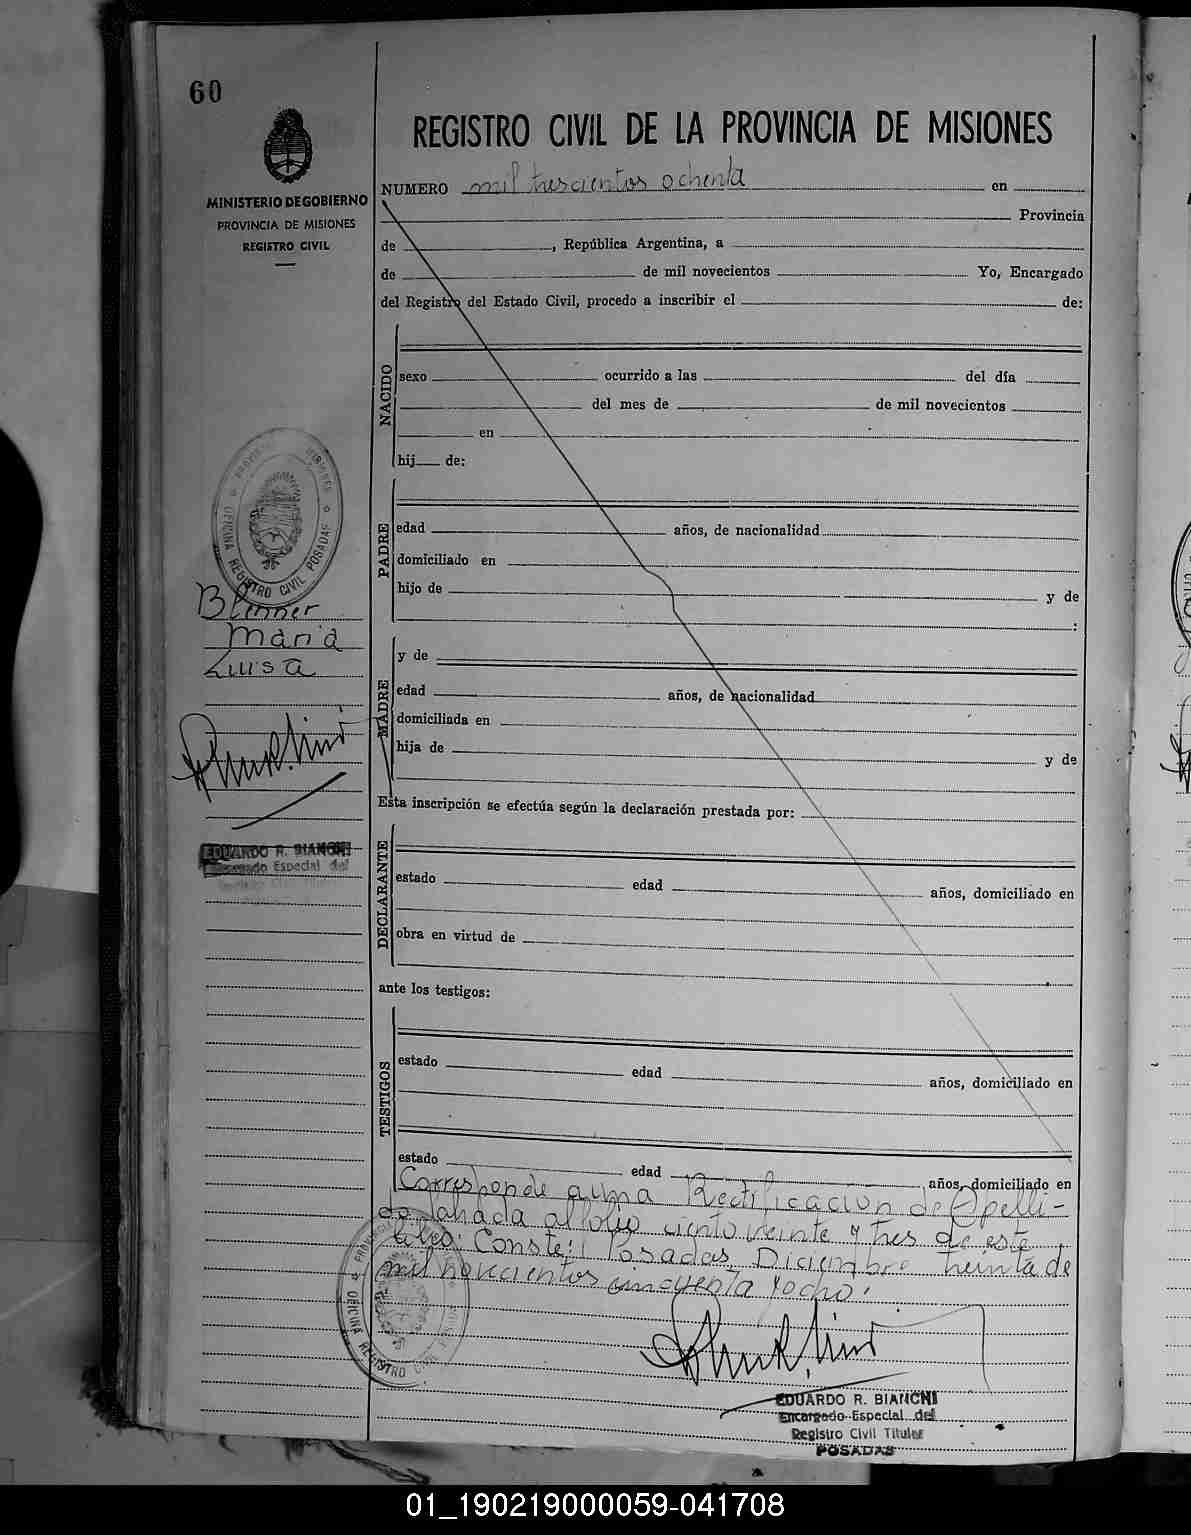 60
MINISTERIO DE GOBIERNO
PROVINCIA DE MISIONES
REGISTRO CIVIL
REGISTRO CIVIL DE LA PROVINCIA DE MISIONES
NUMERO mil trescientos ochenta en
Provincia
de , República Argentina, a
de de mil novecientos Yo, Encargado
del Registro del Estado Civil, procedo a inscribir el de:
NACIDO
sexo ocurrido a las del día
del mes de de mil novecientos
en
hij de:
PADRE
edad años, de nacionalidad
domiciliado en
hijo de y de
:
OFICINA REGISTRO CIVIL POSADAS
Blenner
Maria
Luisa
MADRE
y de
edad años, de nacionalidad
domiciliada en
hija de y de
Esta inscripción se efectúa según la declaración prestada por:
EDUARDO R. BIANCHI
Encargado Especial del
DECLARANTE
estado edad años, domiciliado en
obra en virtud de
ante los testigos:
TESTIGOS
estado edad años, domiciliado en
estado edad años, domiciliado en
Corresponde a una Rectificacion de Apelli-
do, al folio ciento veinte y tres de este
libro. Conste: Posadas, Diciembre treinta de
mil novecientos cincuenta y ocho.
OFICINA REGISTRO CIVIL
EDUARDO R. BIANCHI
Encargado Especial del
Registro Civil Titular
POSADAS
01_190219000059-041708